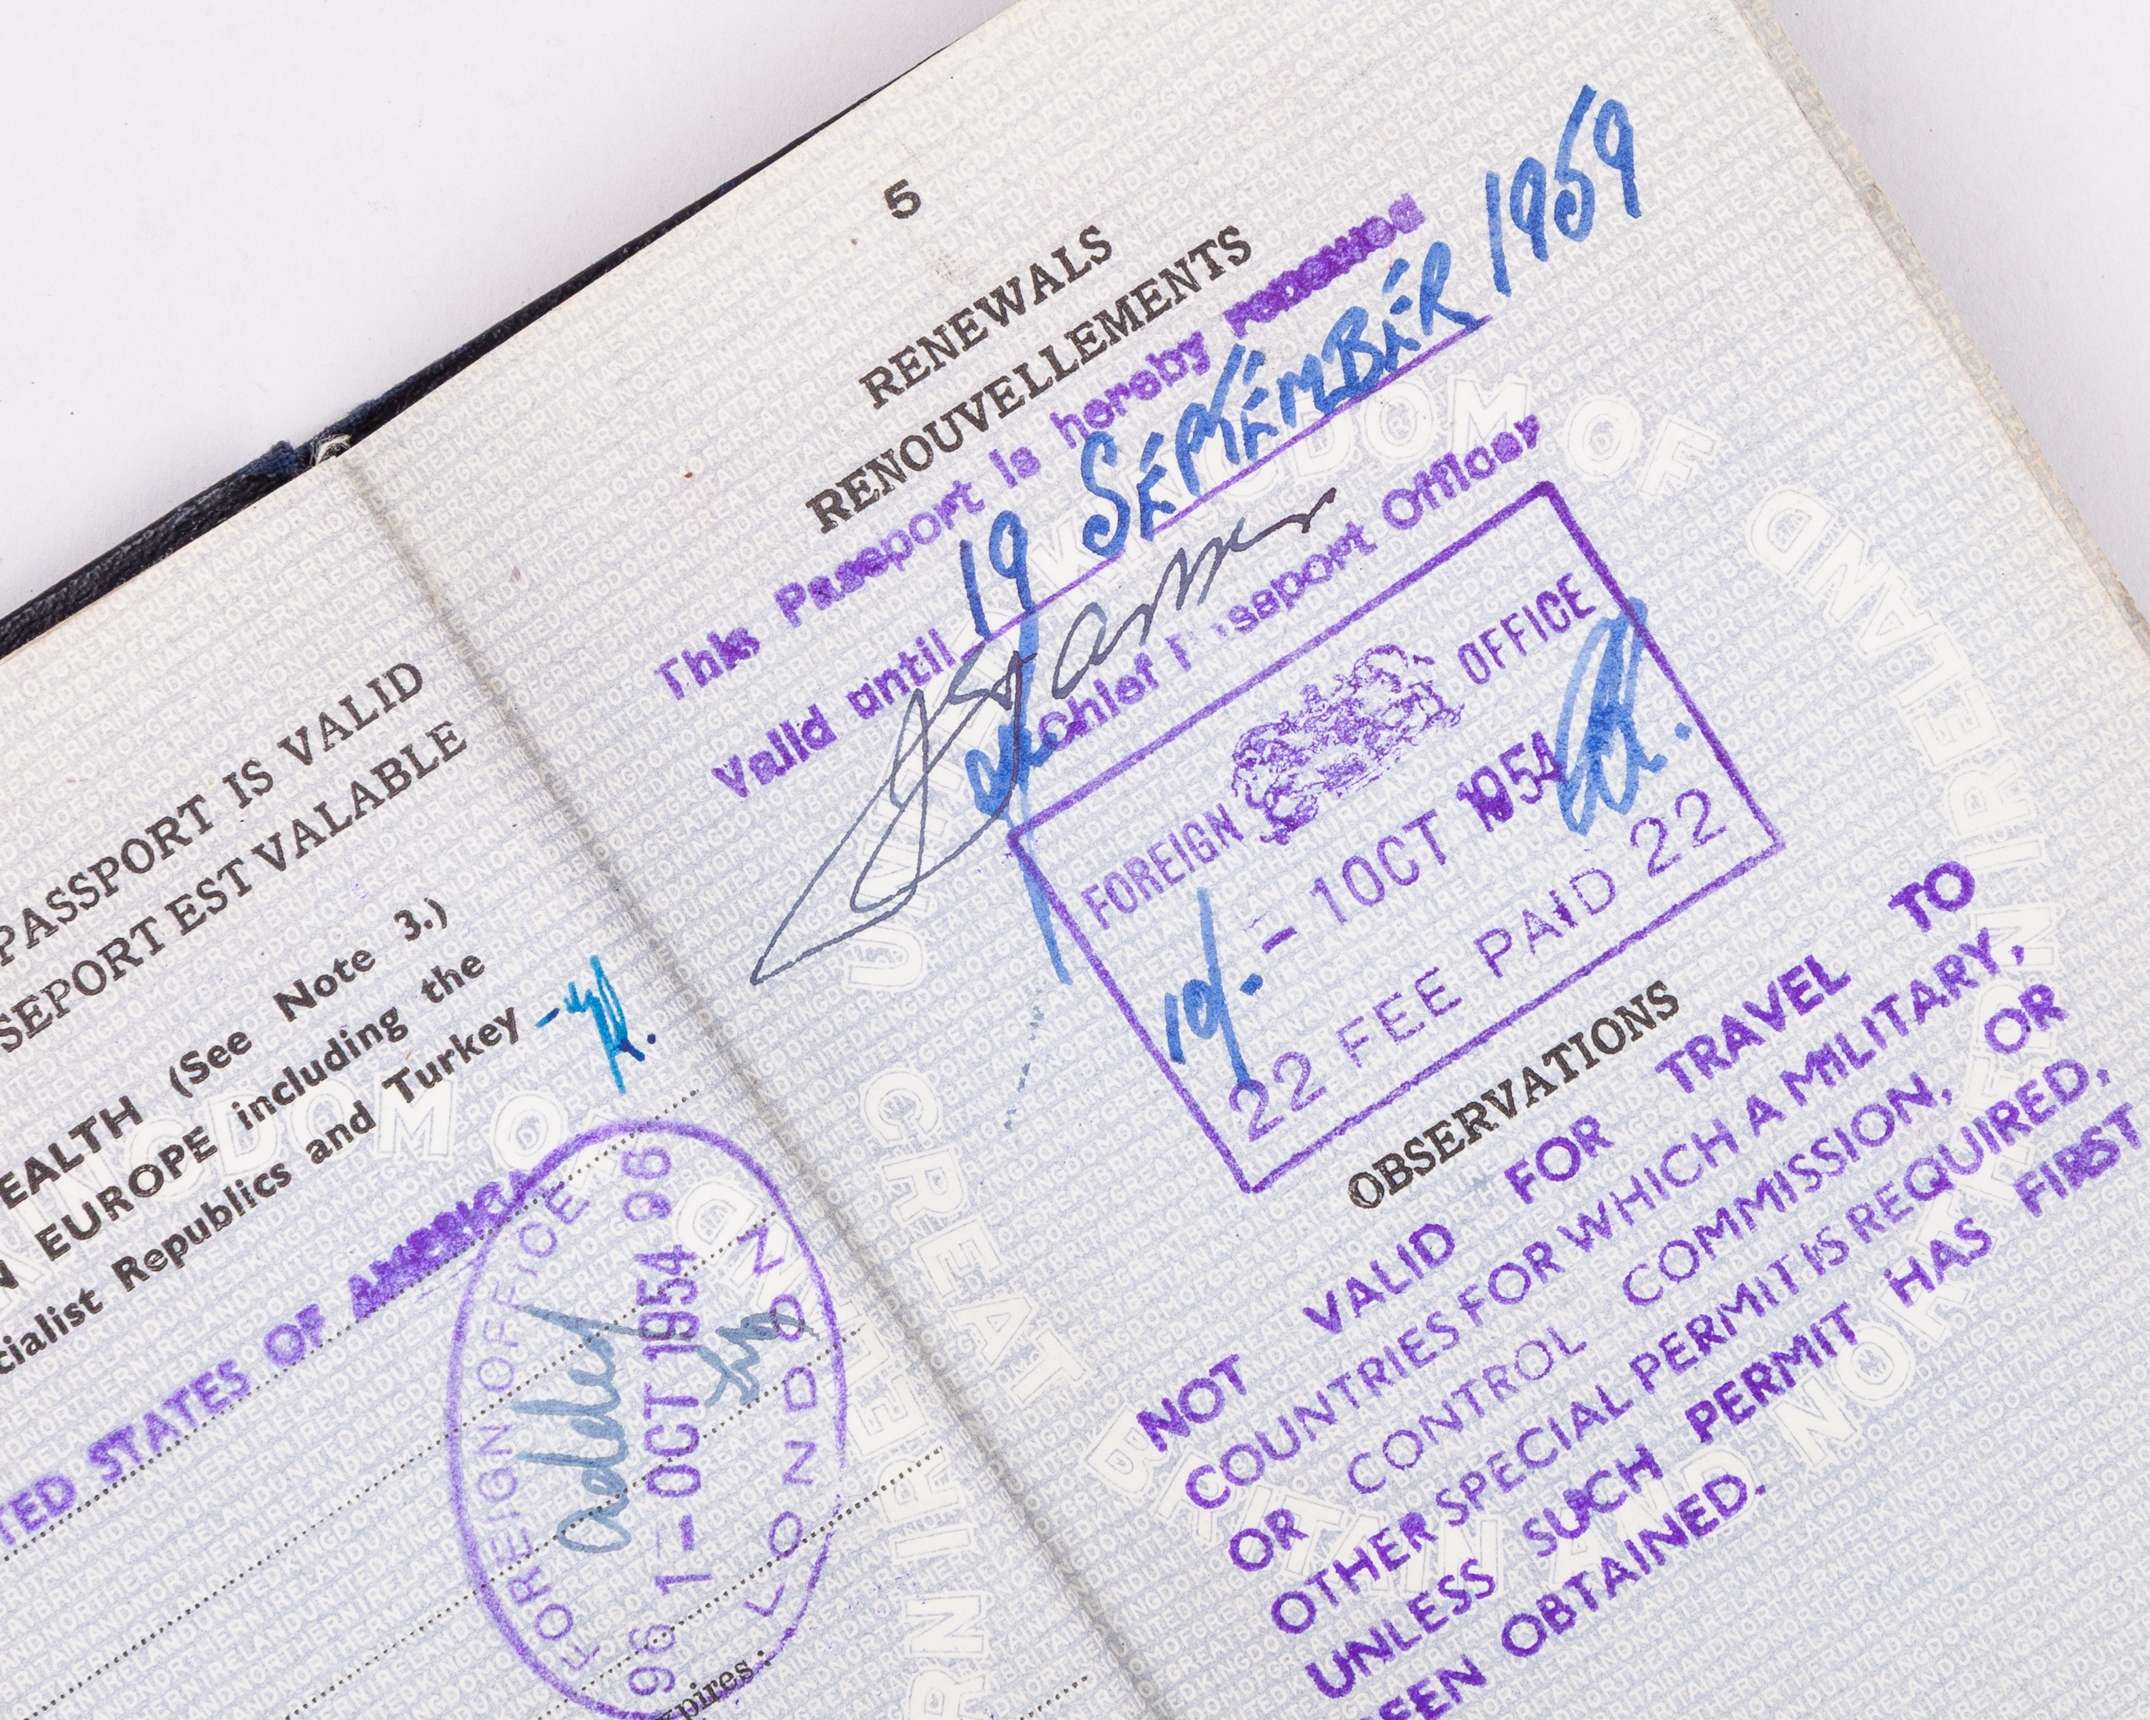 PASSPORT IS VALID
SEPORT EST VALABLE
EALTH (See Note 3.)
EUROPE including the
cialist Republics and Turkey
TED STATES OF AMERICA
FOREIGN OFFICE
96 1-OCT 1954 96
LONDON
xpires:
5
RENEWALS
RENOUVELLEMENTS
This Passport is hereby renewed
Valid until 19 SEPTEMBER 1959
Chief Passport Officer
FOREIGN OFFICE
- 1 OCT 1954
10/.
22 FEE PAID 22
OBSERVATIONS
NOT VALID FOR TRAVEL TO
COUNTRIES FOR WHICH A MILITARY,
OR CONTROL COMMISSION, OR
OTHER SPECIAL PERMIT IS REQUIRED,
UNLESS SUCH PERMIT HAS FIRST
EEN OBTAINED.